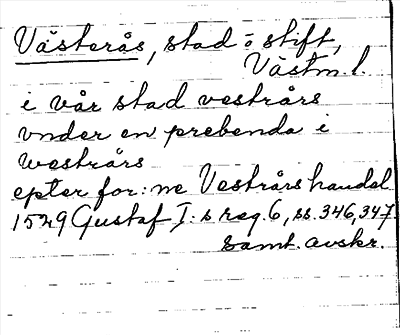 Västerås, stad o stift,
Västm. l.
i vår stad vestrårs
vnder en prebenda i
westrårs
epter for:ne Vestrårs handel
1529 Gustaf I:s reg. 6, ss. 346, 347.
samt. avskr.